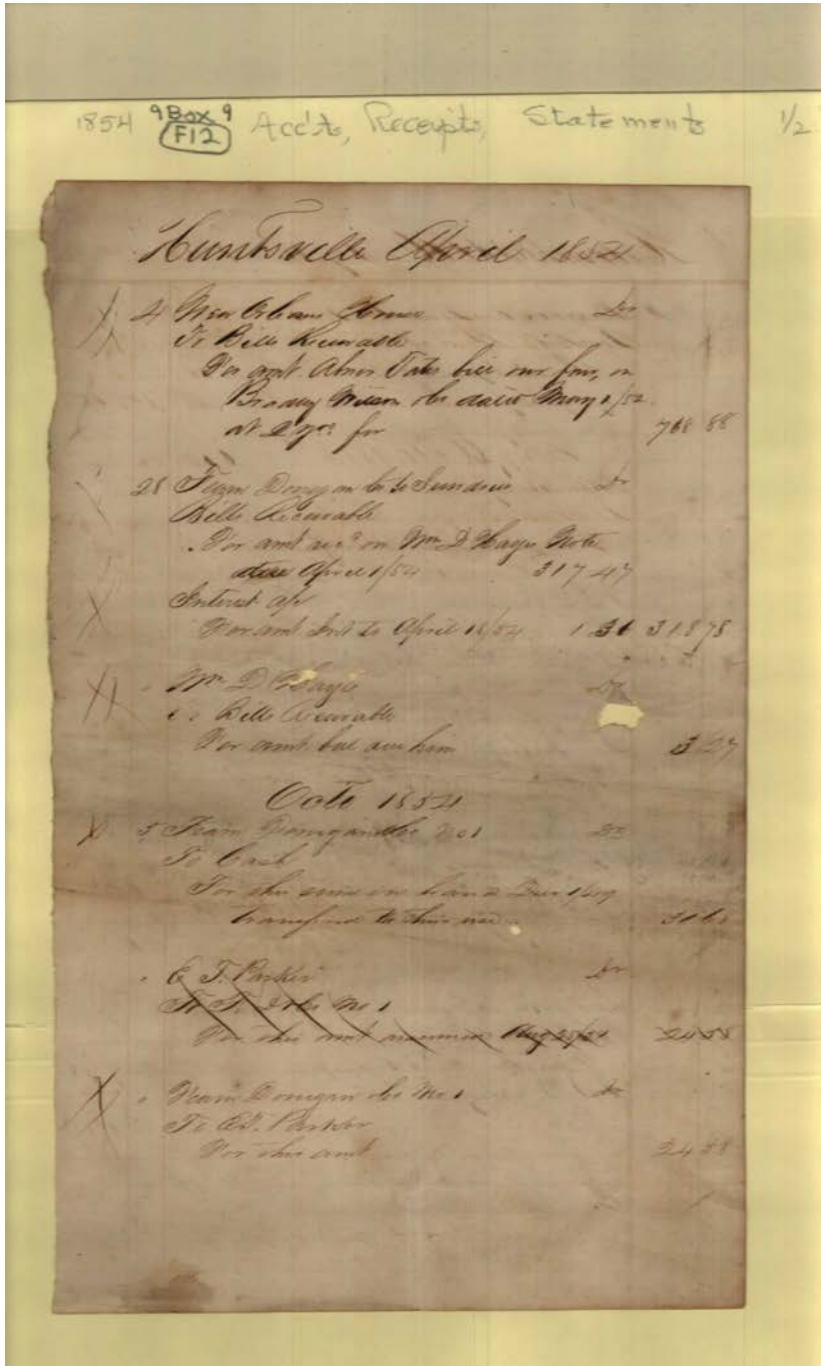 1854 9 Box 9 F12 Acc'ts, Receipts, Statements 1/2
Huntsville April 1854
4 New Orleans House Dr
To Bills Receivable
For amt. Abner Tate bill our fav, on
Bradley Wilson &Co dated May 1/52
at 2 yrs for 768 88
28 Fearn Donegan &Co to Sundries Dr
Bills Receivable
For amt recd on Wm D Hays Note
due April 1/54 317 47
Interest a/c
For amt Int to April 18/54 1 31 318 78
" Wm D Hays Dr
To Bills Receivable
For amt bal due him 3 27
Octo 1854
5 Fearn Donegan &Co No 1 Dr
To Cash
For this
transferred to this
" C T. Parker Dr
To F. D &Co No 1
For this amt Aug 28/54 24 58
" Fearn Donegan &Co No 1 Dr
To C T. Parker
For this amt 24 58